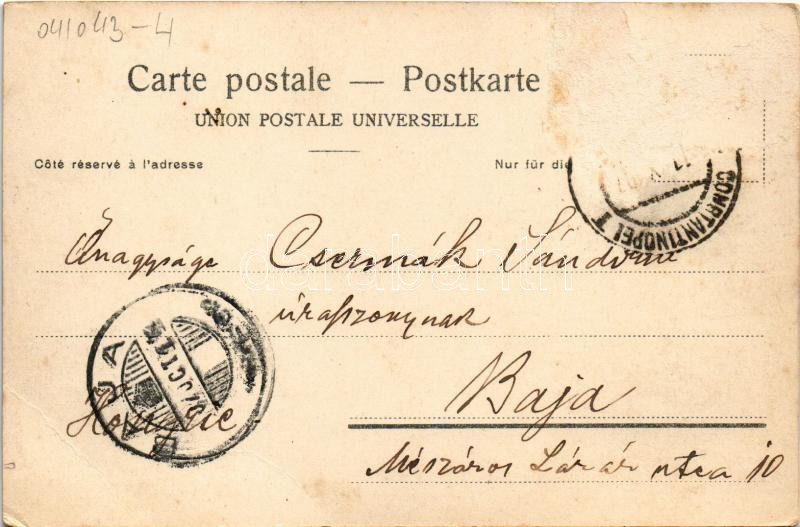 041043-4
Carte postale — Postkarte
UNION POSTALE UNIVERSELLE
Côté réservé à l'adresse
Nur für die
CONSTANTINOPEL 1
11
Őnagysága Csermák Sándorné
úrasszonynak
Baja
Hongrie
Mészáros Lázár utca 10
BAJA
darabanth